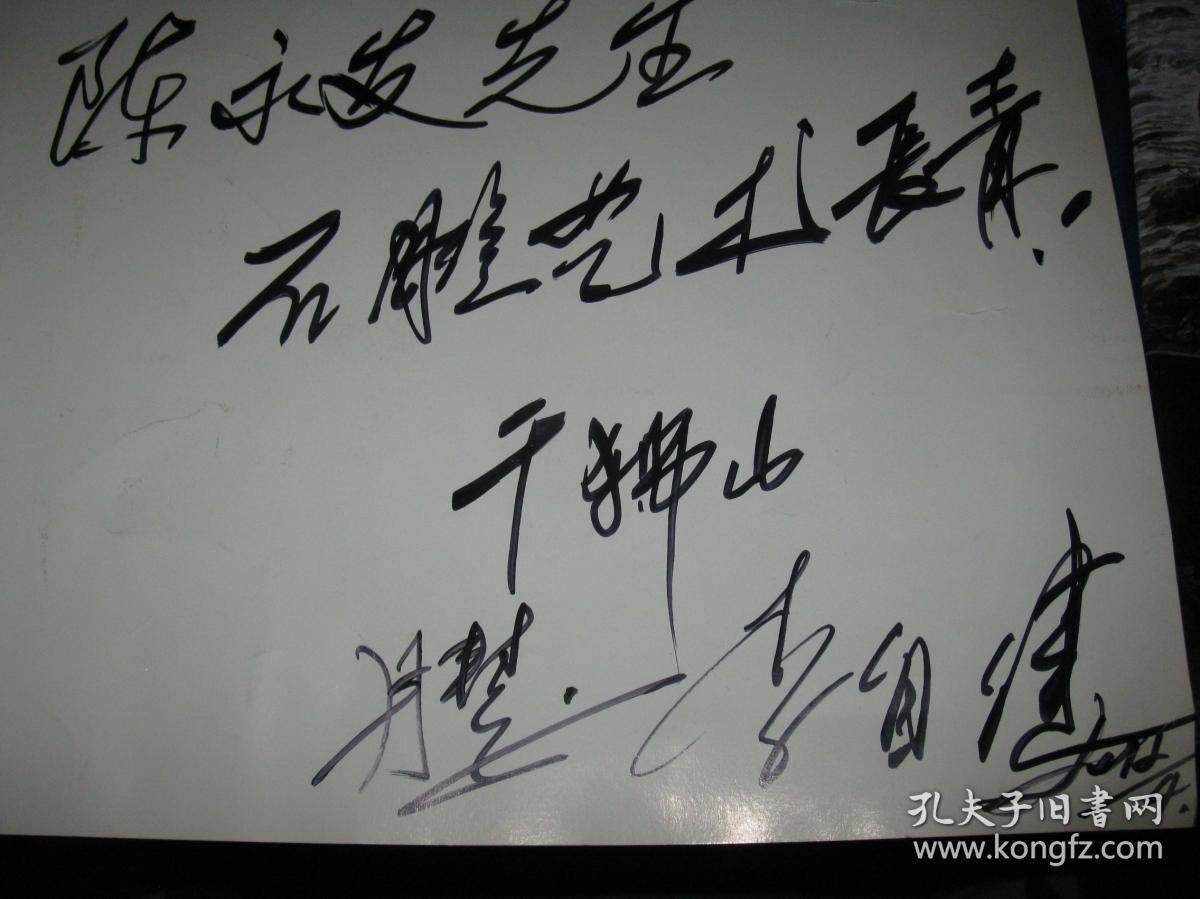 陈永发先生
石雕艺术長青.
千狮山
丹慧. 李自健
孔夫子旧书网
www.kongfz.com